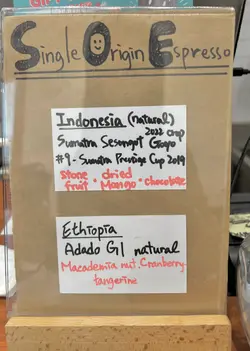 Single Origin Espresso
Indonesia (natural)
2022 crop
Sumatra Sesengut Gayo
#9 - Sumatra Prestige Cup 2019
stone fruit • dried Mango • chocolate
Ethiopia
Adado G1 natural
Macademia nut. Cranberry.
tangerine